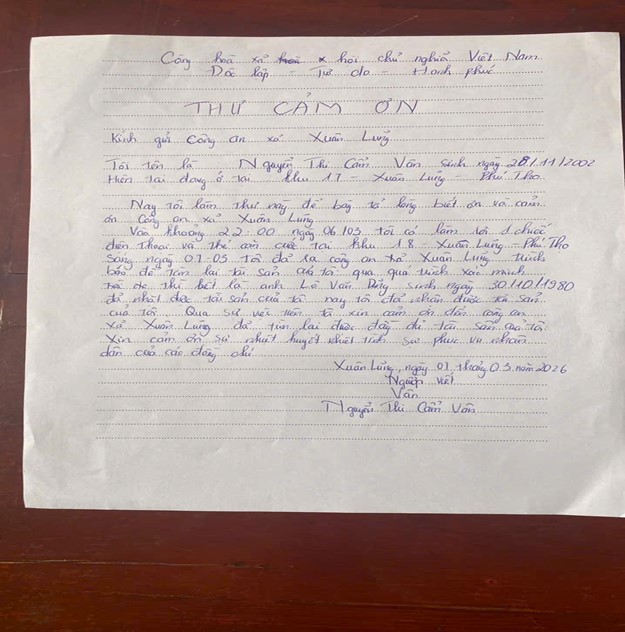 Cộng hoà xã hoà x hội chủ nghĩa Việt Nam
Độc lập - Tự do - Hạnh phúc
THƯ CẢM ƠN
Kính gửi công an xã Xuân Lũng
Tôi tên là Nguyễn Thị Cẩm Vân sinh ngày 28/11/2002
Hiện tại đang ở tại khu 17 - Xuân Lũng - Phú Thọ
Nay tôi làm thư này để bày tỏ lòng biết ơn và cảm
ơn công an xã Xuân Lũng
Vào khoảng 22:00 ngày 06/03 tôi có làm rơi 1 chiếc
điện thoại và thẻ căn cước tại khu 18 - Xuân Lũng - Phú Thọ
Sáng ngày 07-03 tôi đã ra công an xã Xuân Lũng trình
báo để tìm lại tài sản của tôi qua quá trình xác minh
thì biết là anh Lê Văn sinh ngày 30/10/1980
đã nhặt được tài sản của tôi nay tôi đã nhận được tài sản
của tôi. Qua sự việc trên tôi xin cảm ơn đến công an
xã Xuân Lũng đã tìm lại được đầy đủ tài sản của tôi
Xin cảm ơn sự nhiệt huyết nhiệt tình sự phục vụ nhân
dân của các đồng chí
Xuân Lũng, ngày 07 tháng 03 năm 2026
Người viết
Vân
Nguyễn Thị Cẩm Vân